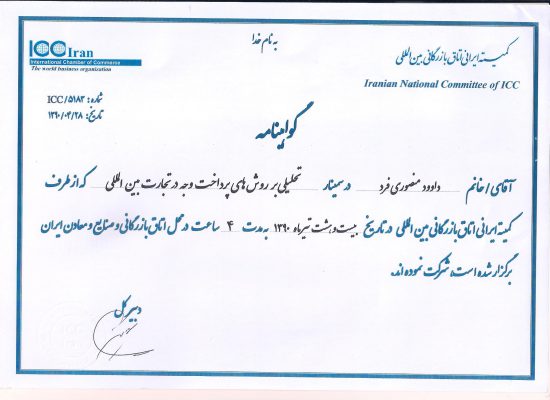 به نام خدا
ICC Iran
International Chamber of Commerce
The world business organization
کمیته ایرانی اتاق بازرگانی بین المللی
Iranian National Committee of ICC
شماره: ICC/۵۱۸۲
تاریخ: ۱۳۹۰/۰۴/۲۸
گواهینامه
آقای/خانم داوود منصوری فرد در سمینار تحلیلی بر روش های پرداخت وجه در تجارت بین المللی که از طرف
کمیته ایرانی اتاق بازرگانی بین المللی در تاریخ بیست و هشت تیرماه ۱۳۹۰ به مدت ۴ ساعت در محل اتاق بازرگانی و صنایع و معادن ایران
برگزار شده است، شرکت نموده اند.
دبیر کل